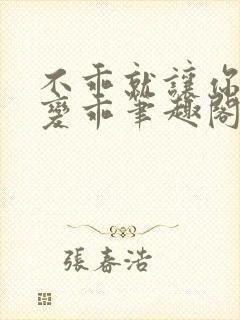 不乖就讓你
變乖筆趣閣
張春浩